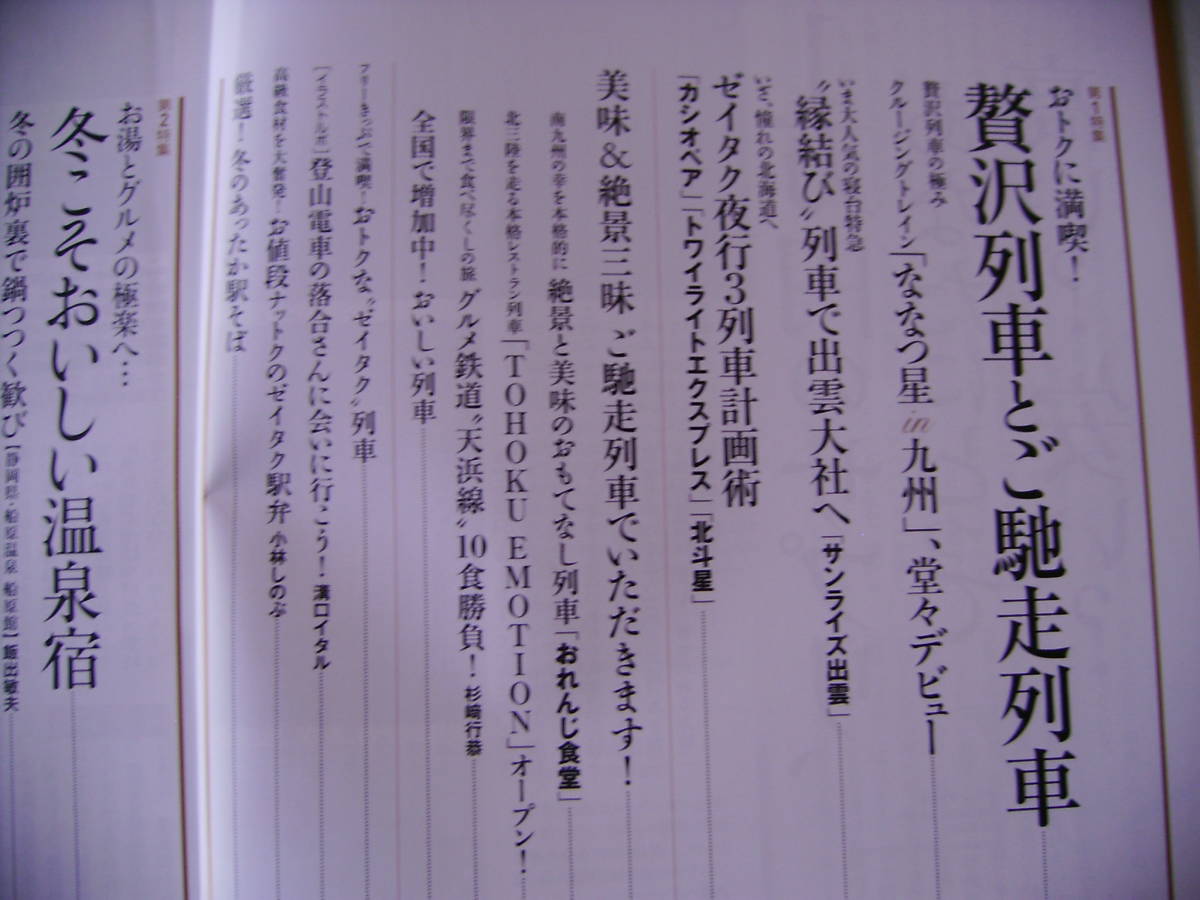 第1特集
おトクに満喫！
贅沢列車とご馳走列車
贅沢列車の極み
クルージングトレイン「ななつ星 in 九州」、堂々デビュー
いま大人気の寝台特急
“縁結び”列車で出雲大社へ「サンライズ出雲」
いざ、憧れの北海道へ
ゼイタク夜行3列車計画術
「カシオペア」「トワイライトエクスプレス」「北斗星」
美味＆絶景三昧 ご馳走列車でいただきます！
南九州の幸を本格的に 絶景と美味のおもてなし列車「おれんじ食堂」
北三陸を走る本格レストラン列車「TOHOKU EMOTION」オープン！
限界まで食べ尽くしの旅 グルメ鉄道“天浜線”10食勝負！ 杉﨑行恭
全国で増加中！おいしい列車
フリーきっぷで満喫！おトクな“ゼイタク”列車
［イラストルポ］登山電車の落合さんに会いに行こう！・溝口イタル
高級食材を大奮発！お値段ナットクのゼイタク駅弁 小林しのぶ
厳選！冬のあったか駅そば
第2特集
お湯とグルメの極楽へ…
冬こそおいしい温泉宿
冬の囲炉裏で鍋つつく歓び【静岡県・船原温泉 船原館】飯出敏夫